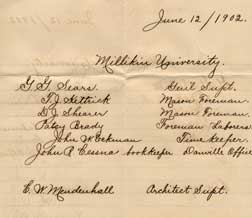 June 12/1902.
Millikin University.
G. G. Sears. Gen'l Supt.
T. J. Hettrick Mason Foreman
D. J. Shearer Mason Foreman.
Patsy Brady Foreman Laborers
John W Eckman Time keeper.
John R Cessna bookkeeper Danville Office
C. W Mendenhall Architect Supt.